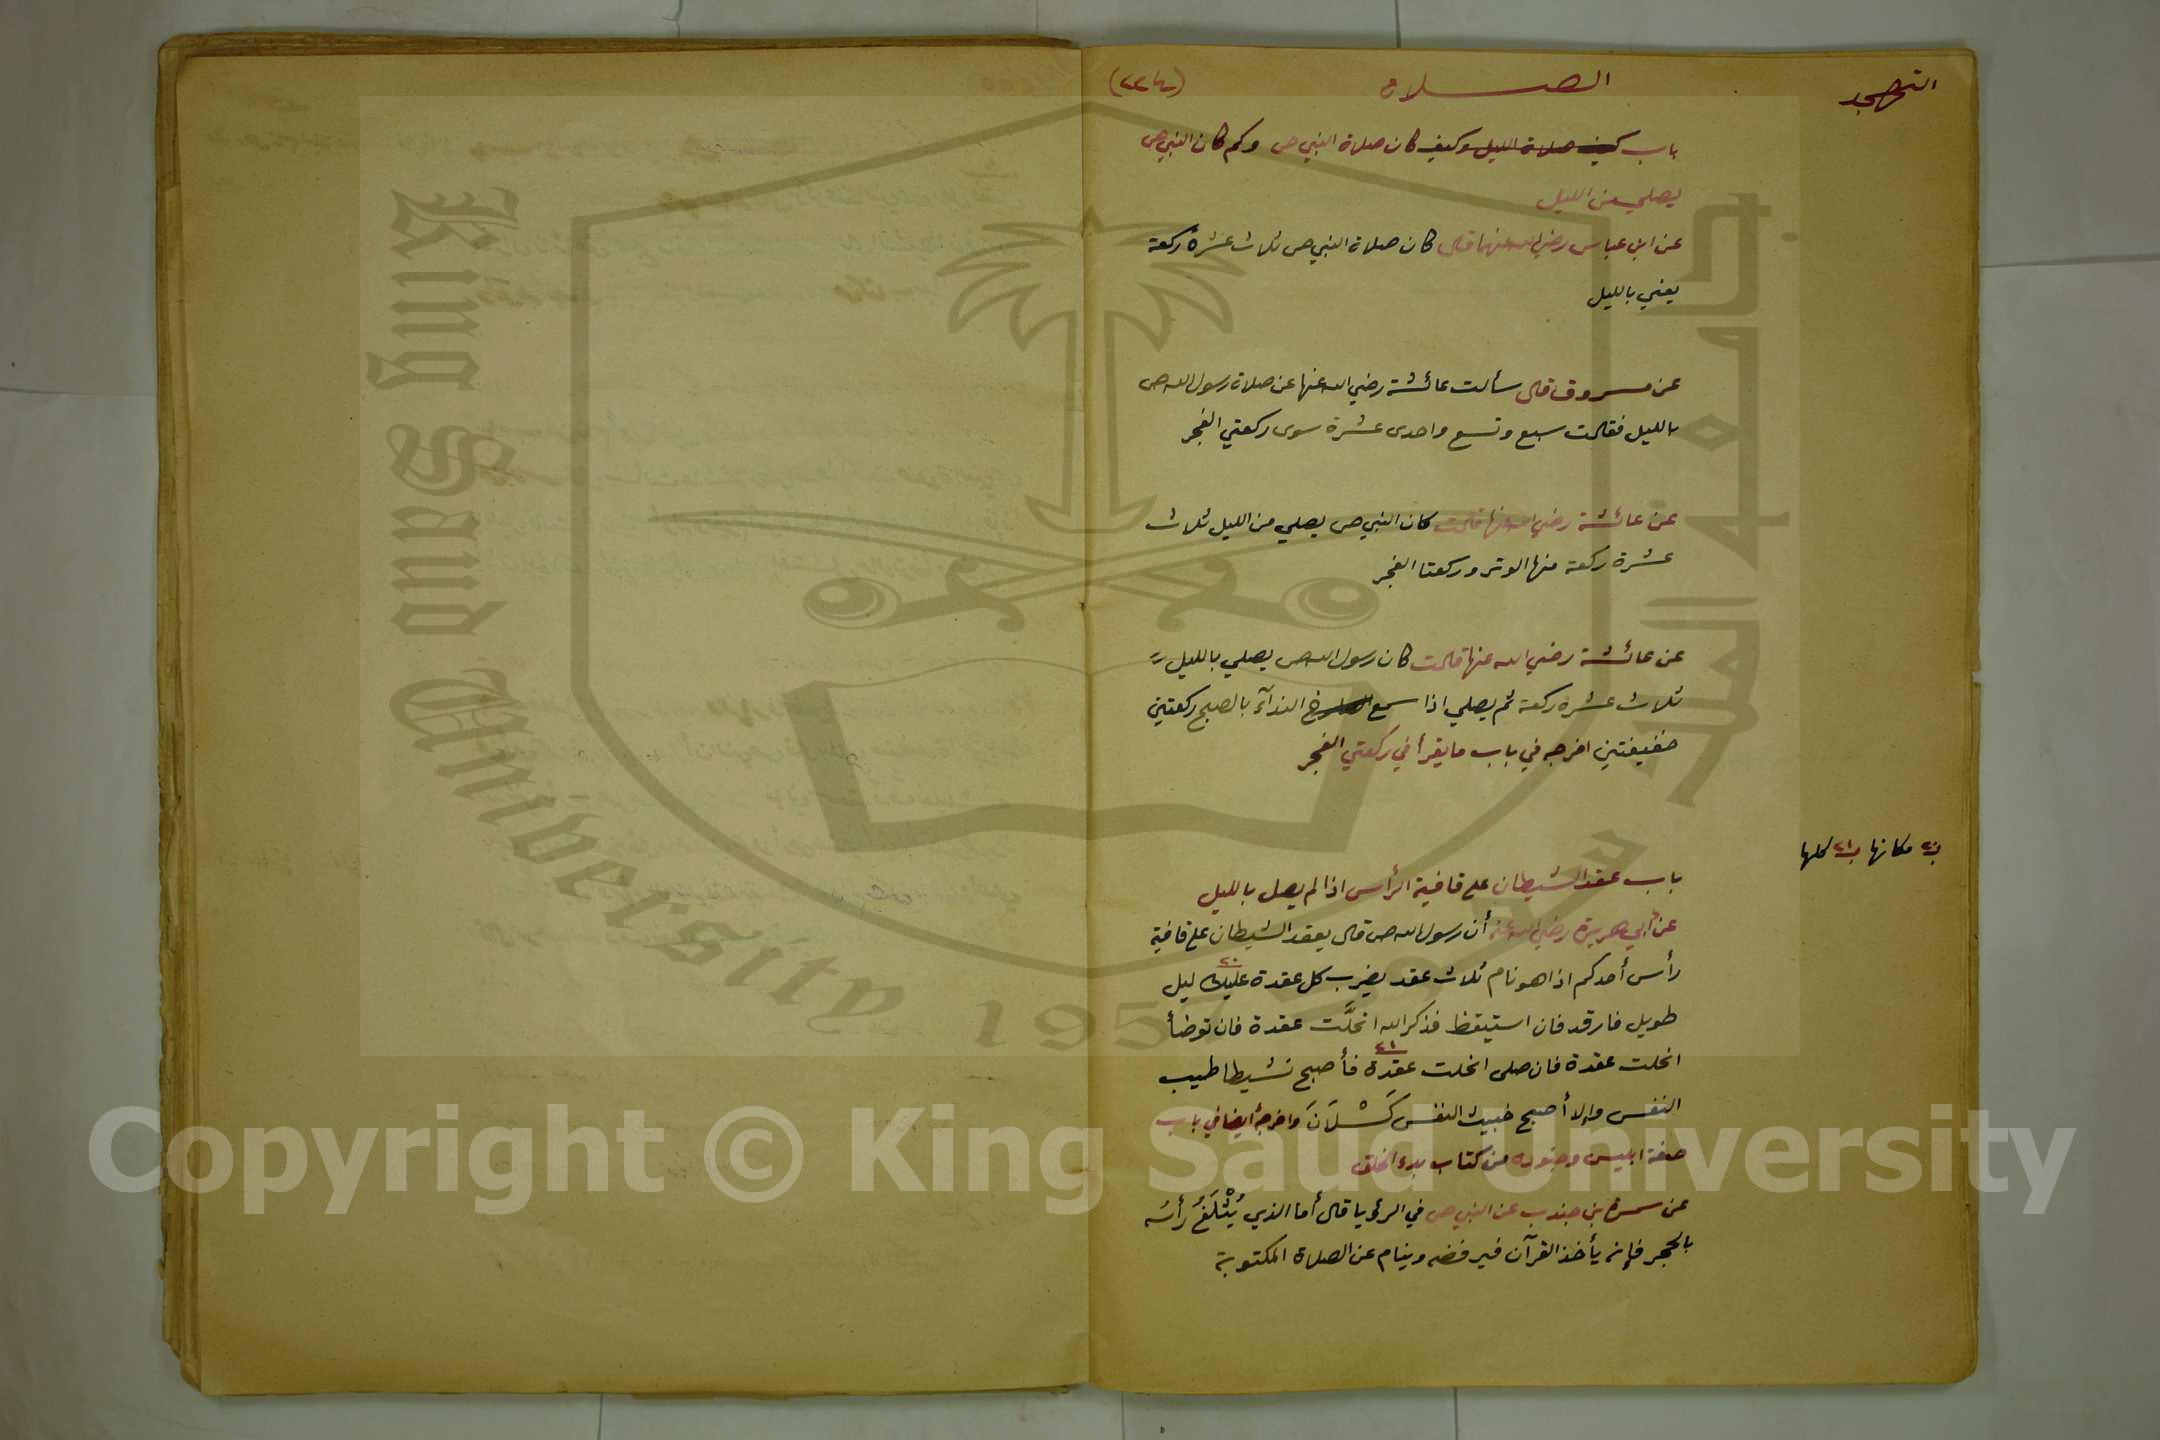 التهجد
الصلاة
باب كيف صلاة الليل وكيف كان صلاة النبي ص وكم كان النبي ص
يصلي من الليل
عن ابن عباس رضي الله عنهما قال كان صلاة النبي ص ثلاث عشرة ركعة
يعني بالليل
عن مسروق قال سألت عائشة رضي الله عنها عن صلاة رسول الله ص
بالليل فقالت سبع وتسع واحدى عشرة سوى ركعتي الفجر
عن عائشة رضي الله عنها قالت كان النبي ص يصلي من الليل ثلاث
عشرة ركعة منها الوتر وركعتا الفجر
عن عائشة رضي الله عنها قالت كان رسول الله ص يصلي بالليل
ثلاث عشرة ركعة ثم يصلي اذا سمع الصارخ الندآء بالصبح ركعتين
خفيفتين اخرجه في باب ما يقرأ في ركعتي الفجر
ن٢٠ مكانها ن٢١ كلها
باب عقد الشيطان على قافية الرأس اذا لم يصل بالليل
عن أبي هريرة رضي الله عنه أن رسول الله ص قال يعقد الشيطان على قافية
رأس أحدكم اذا هو نام ثلاث عقد يضرب كل عقدة عليك ليل
٢٠
طويل فارقد فان استيقظ فذكر الله انحلَّت عقدة فان توضأ
انحلت عقدة فان صلى انحلت عقدة فأصبح نشيطا طيب
٢١
النفس وإلا أصبح خبيث النفس كَسْلَانَ واخرجه أيضا في باب
صفة ابليس وجنوده من كتاب بدء الخلق
عن سمرة بن جندب عن النبي ص في الرؤيا قال أما الذي يُثْلَغُ رأسُه
بالحجر فإنه يأخذ القرآن فيرفضه وينام عن الصلاة المكتوبة
King Saud University
1957
Copyright © King Saud University